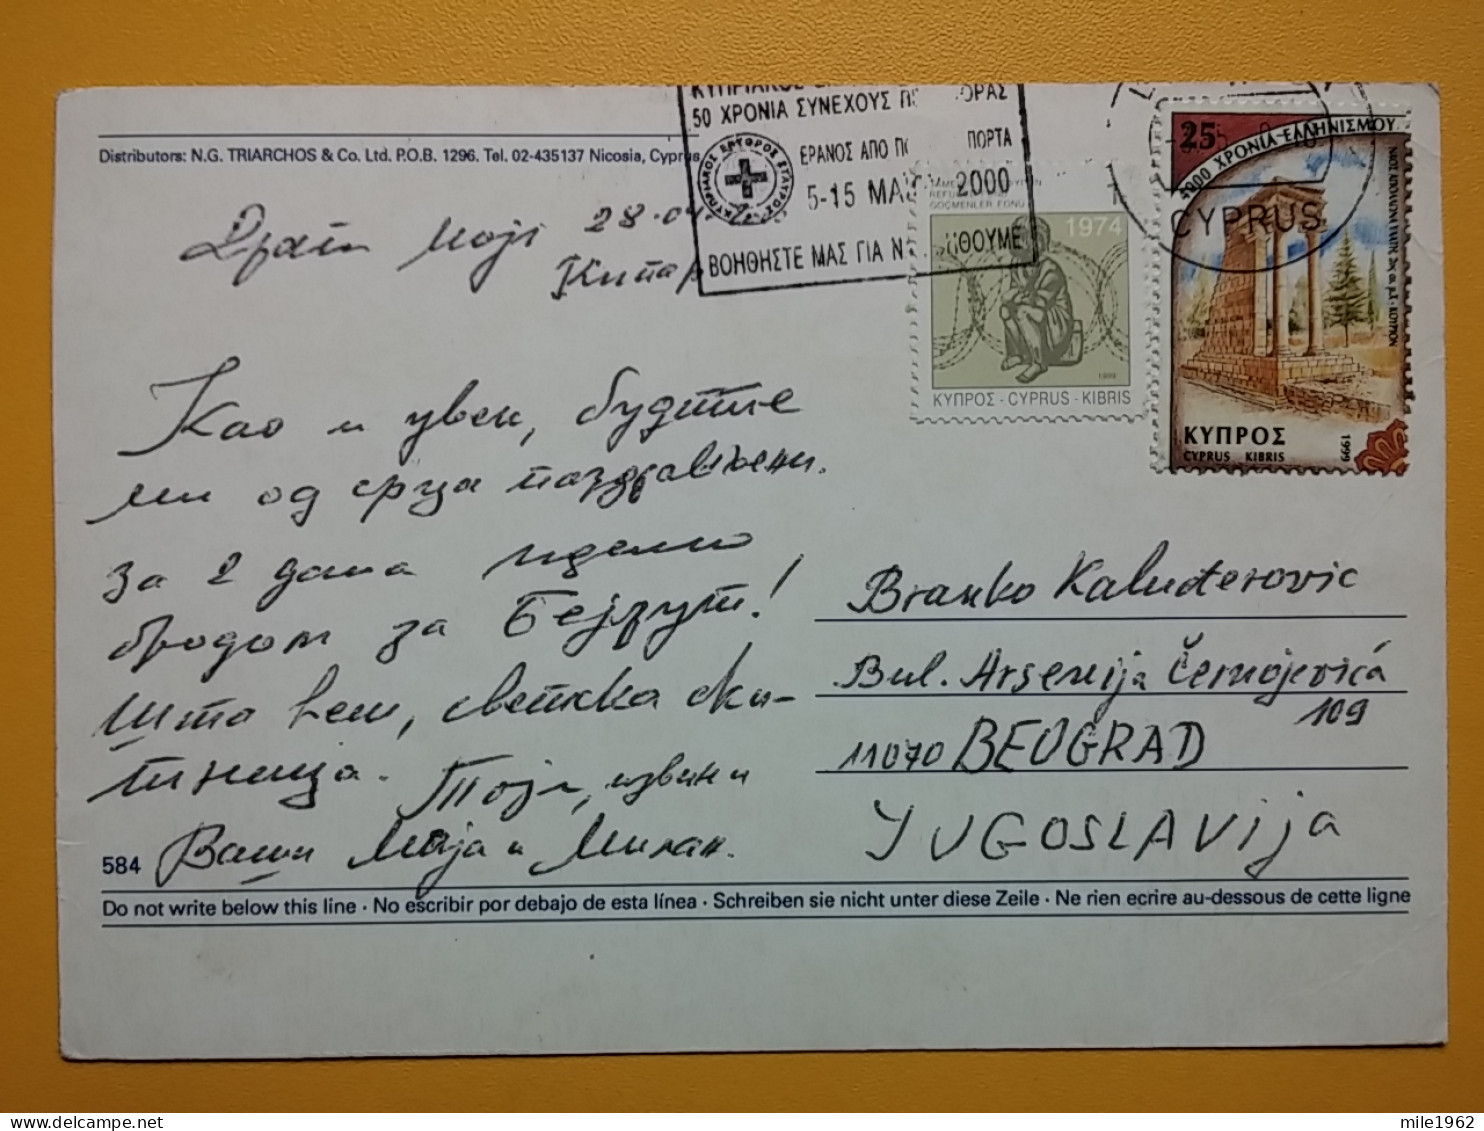 Distributors: N.G. TRIARCHOS & Co. Ltd. P.O.B. 1296. Tel. 02-435137 Nicosia, Cyprus
50 ΧΡΟΝΙΑ ΣΥΝΕΧΟΥΣ
ΕΡΑΝΟΣ ΑΠΟ ΠΟΡΤΑ
5-15 2000
ΒΟΗΘΗΣΤΕ ΜΑΣ ΓΙΑ
ΚΥΠΡΙΑΚΟΣ ΕΡΥΘΡΟΣ ΣΤΑΥΡΟΣ
1974
1999
ΚΥΠΡΟΣ - CYPRUS - KIBRIS
CYPRUS
25
4000 ΧΡΟΝΙΑ ΕΛΛΗΝΙΣΜΟΥ
ΚΥΠΡΟΣ
CYPRUS KIBRIS
1999
Драги моји 28.04
Кипар
Као и увек, будите
ми од срца поздрављени.
За 2 дана идемо
бродом за Бејрут!
Шта ћеш, светска ски-
тница. Тоји, извини
Ваши Маја и Милан.
Branko Kaluđerovic
Bul. Arsenija Černojevića
109
11070 BEOGRAD
YUGOSLAVija
584
Do not write below this line · No escribir por debajo de esta línea · Schreiben sie nicht unter diese Zeile · Ne rien ecrire au-dessous de cette ligne
mile1962